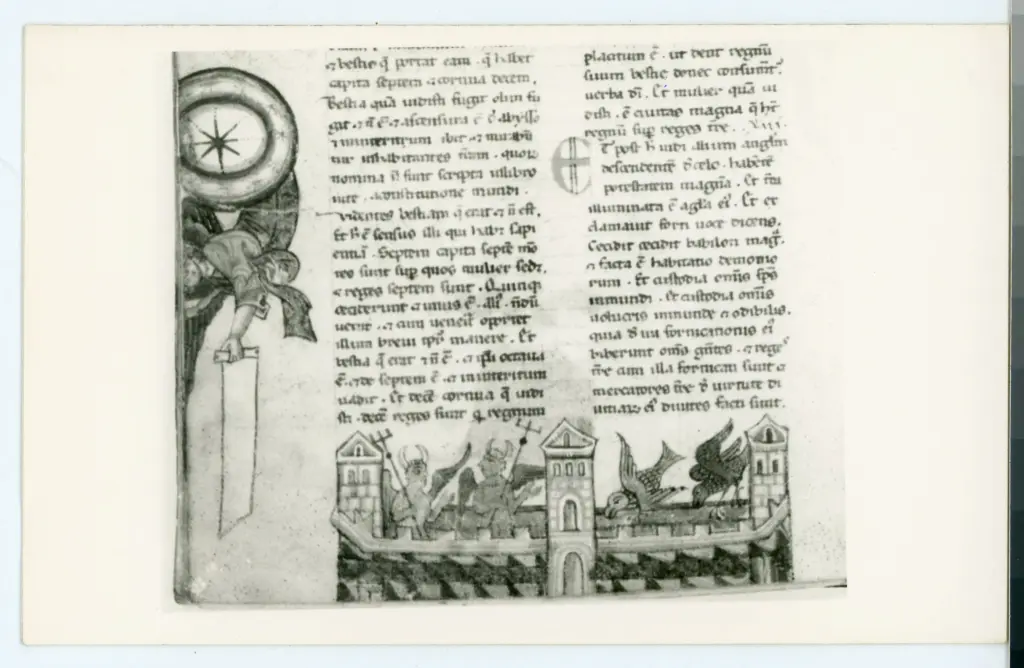 & bestie q̄ portat eam . q̄ habet
capita septem & cornua decem .
Bestia quā uidisti fugit olim fu
git . & n̄ ē . & ascensura ē d̄ abysso
& in interitum ibit . & mirabū
tur inhabitantes
nomina n̄ sunt scripta in libro
uite . a constitutione mundi .
uidentes bestiam q̄ erat & n̄ est .
Et h̄ ē sensus illi qui habet sapi
entiā . Septem capita septē mō
tes sunt sup quos mulier sedz ,
& reges septem sunt . Quinqȝ
ceciderunt & unus ē . Ali⁹ n̄dū
uenit . & cum uenerit oportet
illum breui tp̄s manere . Et
bestia q̄ erat & n̄ ē . & ipsa octaua
ē . & de septem ē . & in interitum
uadit . Et decē cornua q̄ uidi
sti . decē reges sunt q̄ regnum
placitum ē . ut dent regnū
suum bestie donec consumēt᷑
uerba dī . Et mulier quā ui
disti . ē ciuitas magna q̄ ht̄
regnū sup reges tr̄e . XVIII .
ET post h̄ uidi alium angłm
descendentē d̄ celo . habētē
potestatem magnā . Et t̄ra
illuminata ē a gl̄a ei⁹ . Et ex
clamauit forti uoce dicens .
Cecidit cecidit babilon mag᷑ .
& facta ē habitatio demonio
rum . Et custodia om̄is sp̄s
inmundi . Et custodia om̄is
uolucris inmunde & odibilis .
quia d̄ ira fornicationis ei⁹
biberunt om̄s gn̄tes . & reges
tr̄e cum illa fornicati sunt &
mercatores tr̄e d̄ uirtute di
uitiarꝝ ei⁹ diuites facti sunt .